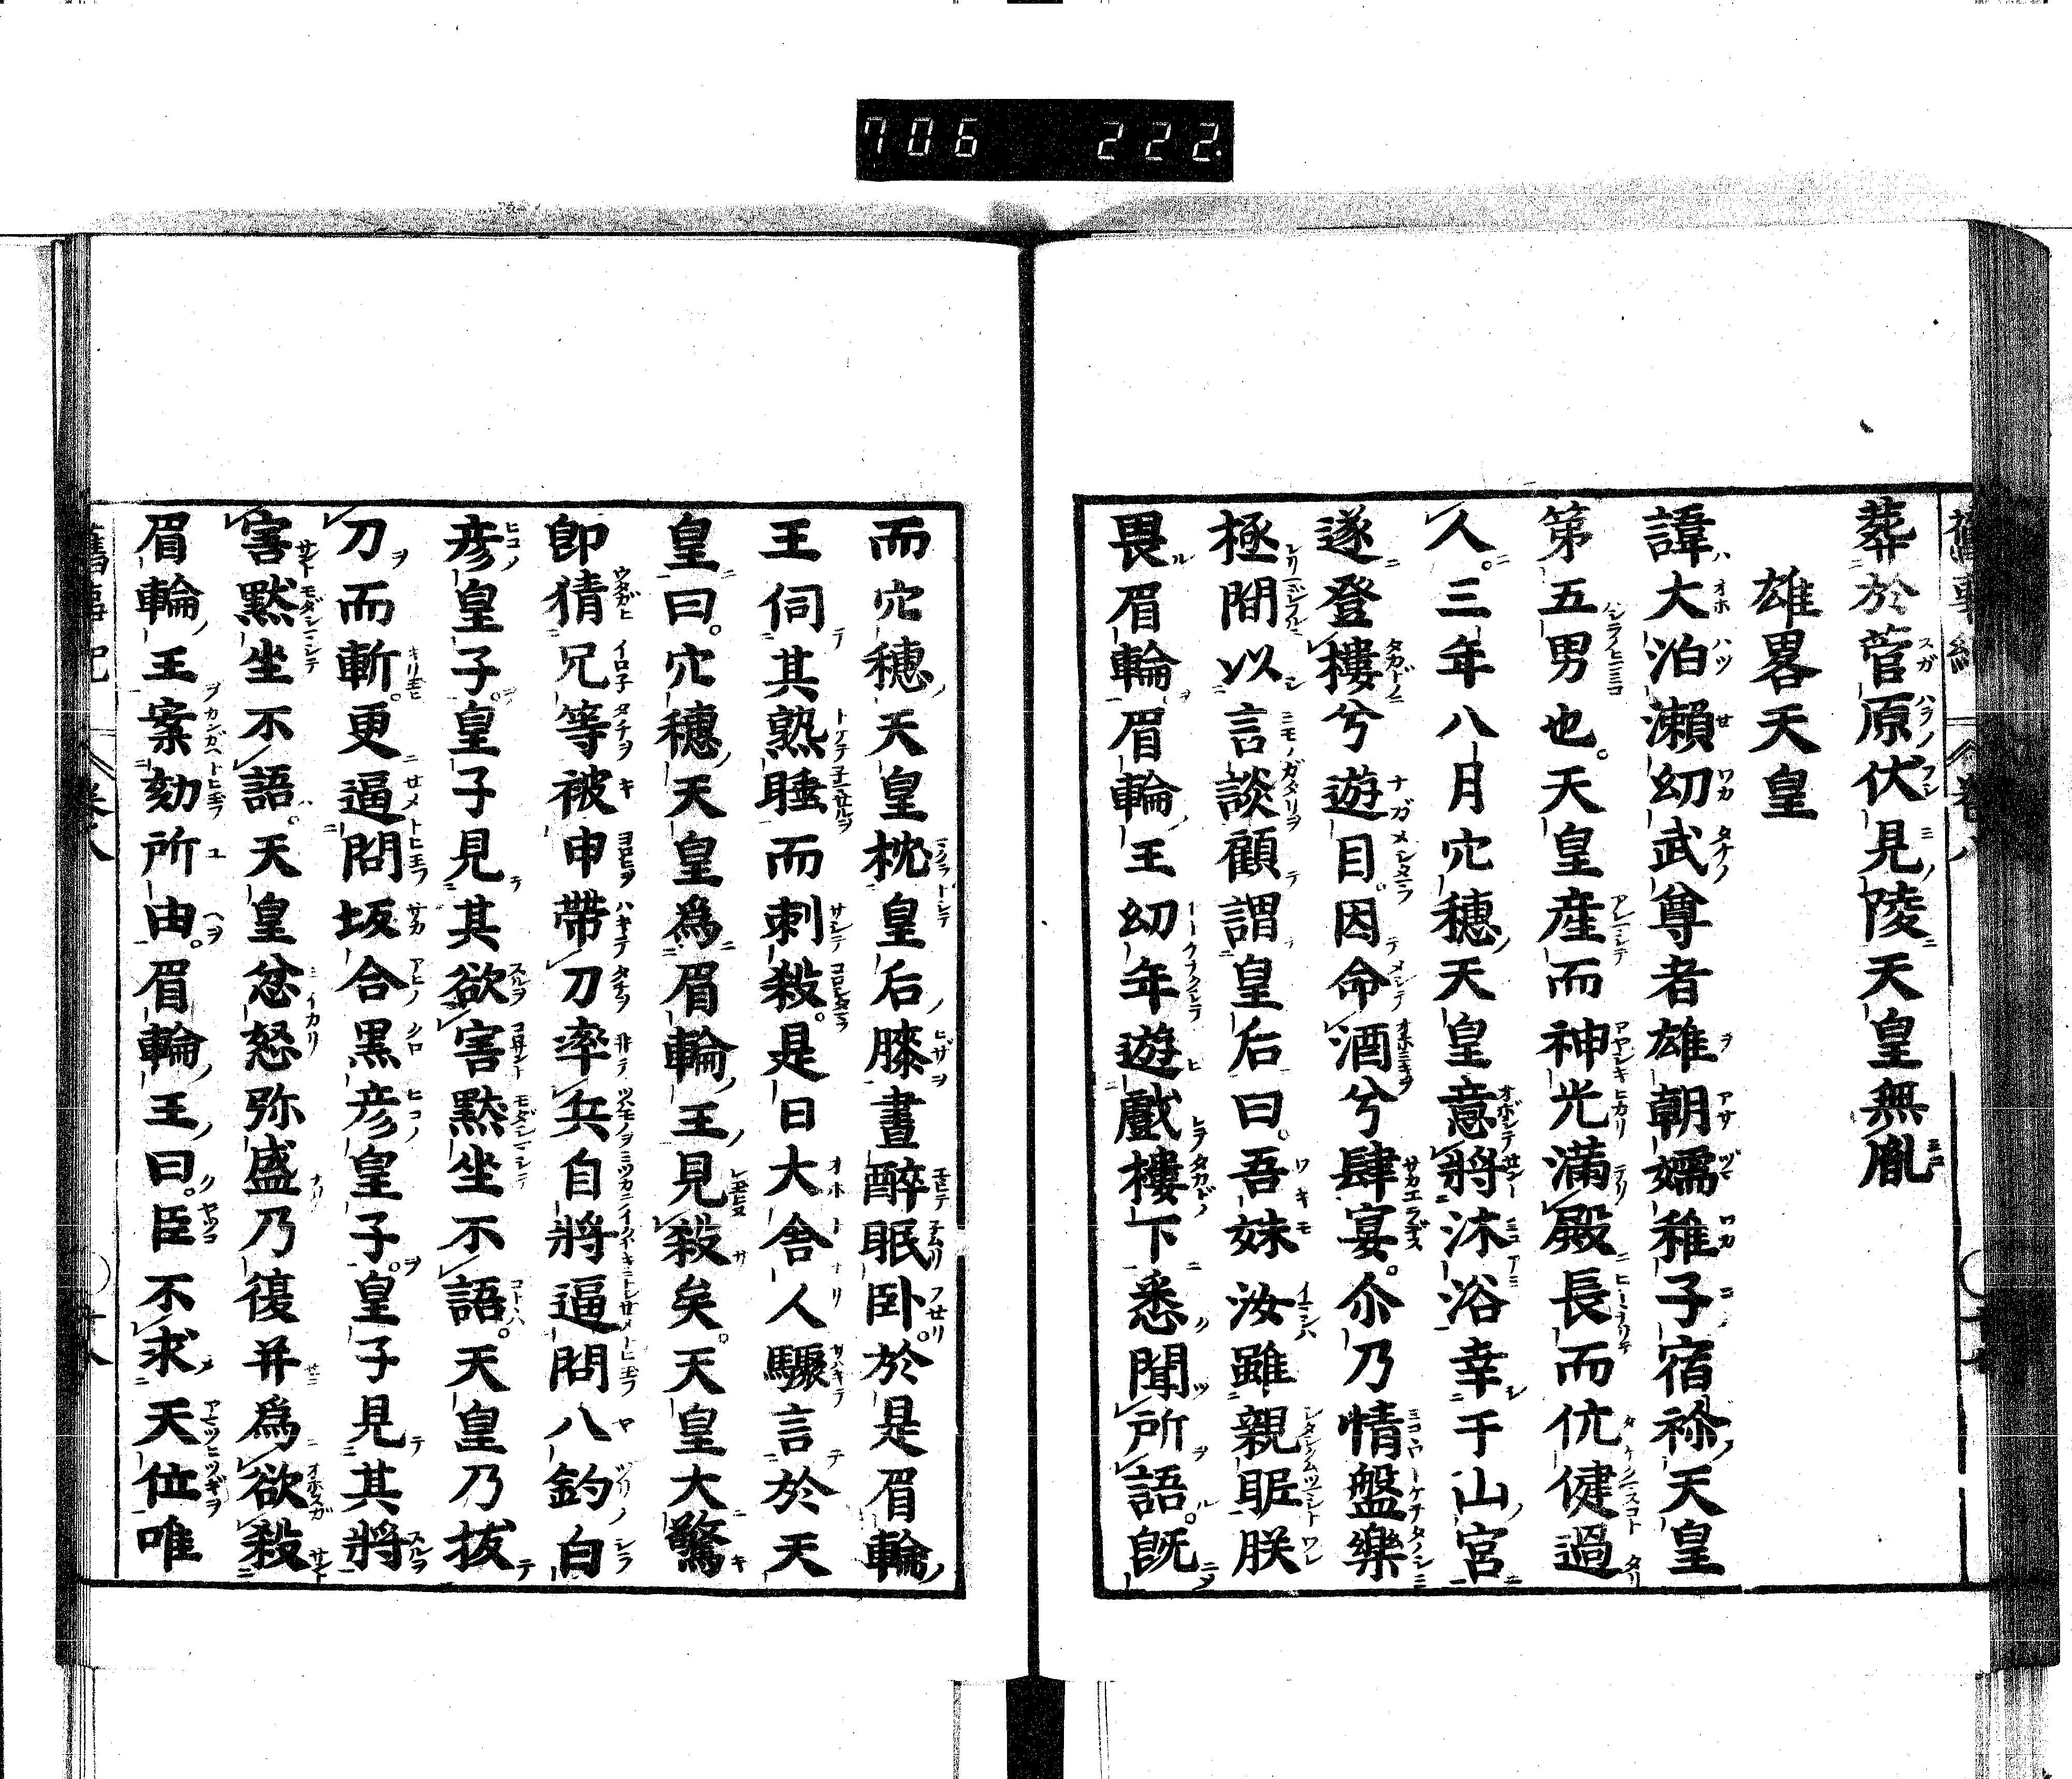 706 222
葬於菅原伏見陵天皇無胤
雄畧天皇
諱大泊瀬幼武尊者雄朝嬬稚子宿祢天皇
第五男也。天皇産而神光満殿長而伉健過
人。三年八月穴穗天皇意將沐浴幸于山宮
遂登樓兮遊目。因命酒兮肆宴。尒乃情盤樂
極間以言談顧謂皇后曰。吾妹汝雖親昵朕
畏眉輪眉輪王幼年遊戲樓下悉聞所語。旣
而穴穗天皇枕皇后膝晝醉眠卧。於是眉輪
王伺其熟睡而刺殺。是日大舎人驟言於天
皇曰。穴穗天皇爲眉輪王見殺矣。天皇大驚
卽猜兄等被甲帶刀率兵自將逼問八釣白
彦皇子。皇子見其欲害黙坐不語。天皇乃拔
刀而斬。更逼問坂合黒彦皇子。皇子見其將
害黙坐不語。天皇忿怒弥盛乃復并爲欲殺
眉輪王案劾所由。眉輪王曰。臣不求天位唯